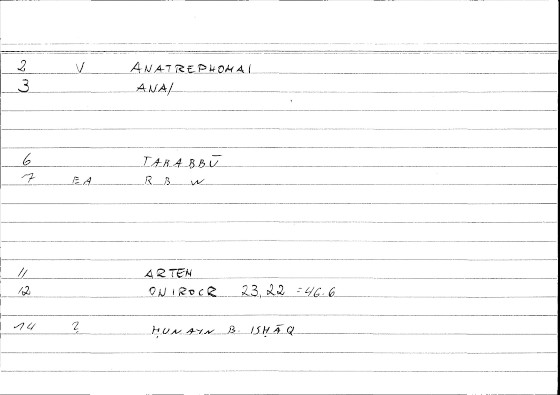 2 V ANATREPHOMAI
3 ANA/
6 TARABBŪ
7 EA R B W
11 ARTEM
12 ONIROCR 23,22 = 46.6
14 2 ḤUNAYN B. ISḤĀQ